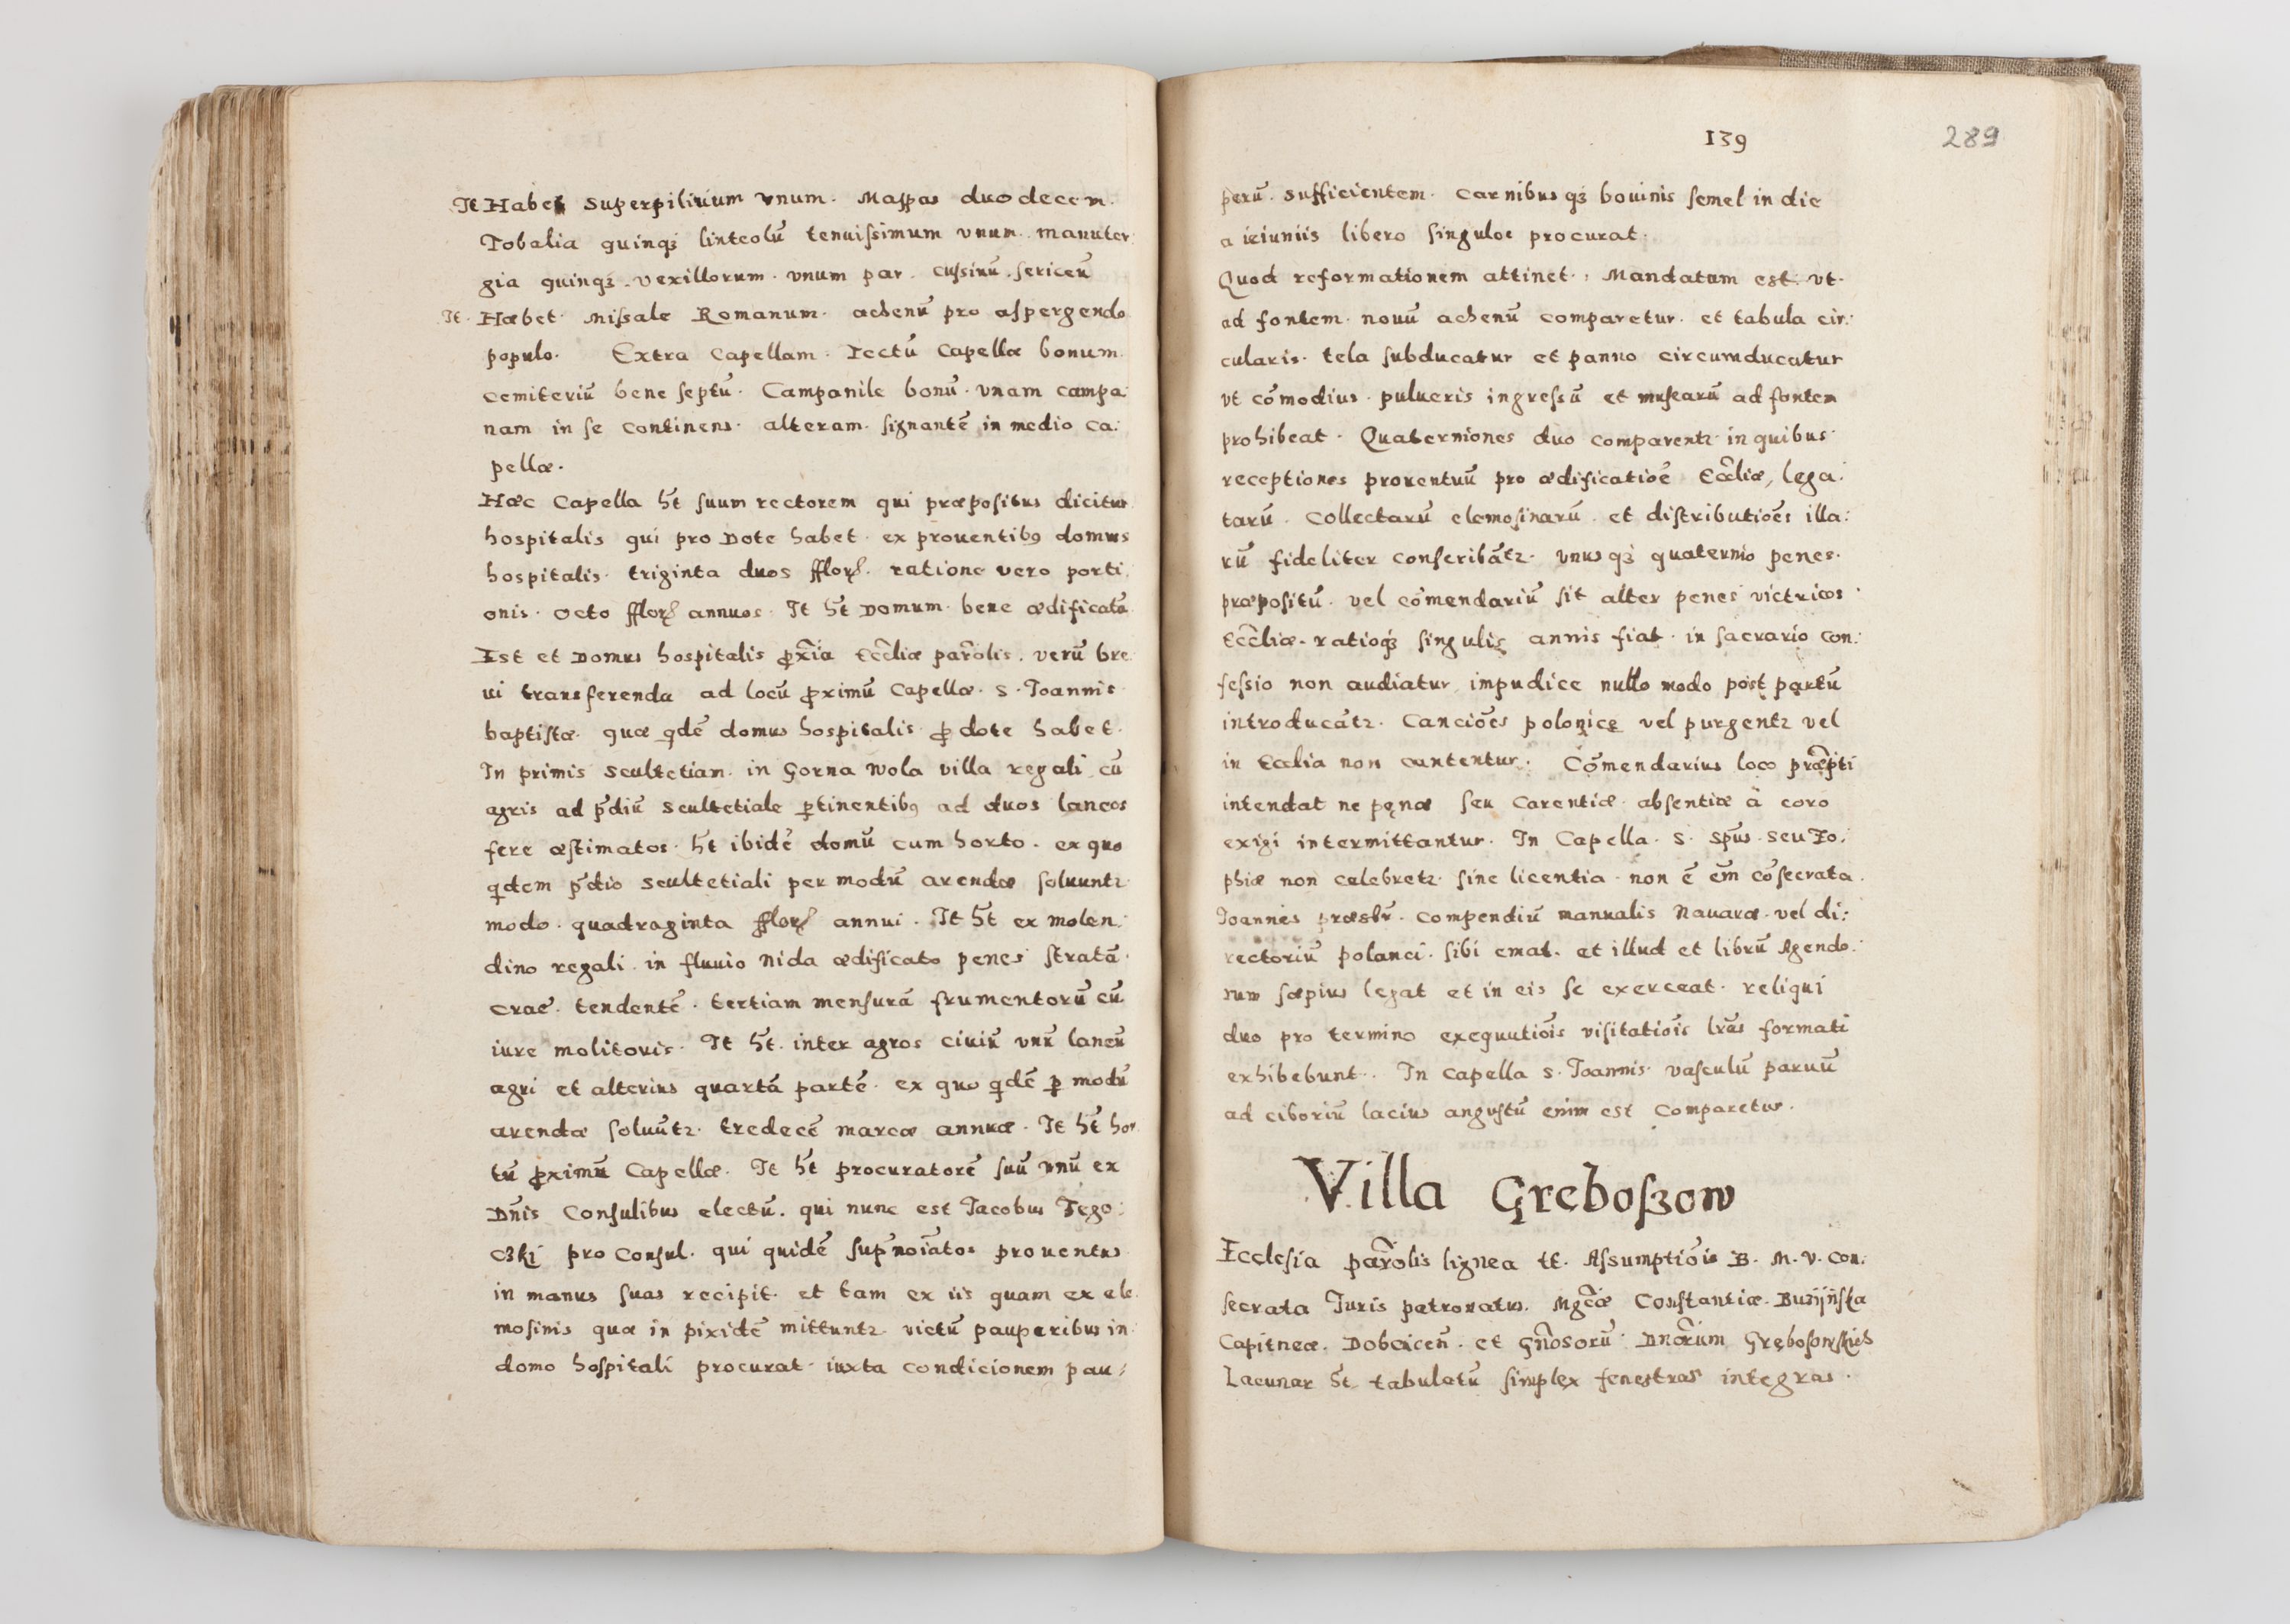 It Habet superpilitium vnum. Mappas duodecem.
Tobalia quinqꝫ linteolū tenuissimum vnum. manuter:
gia quinqꝫ. vexillorum. vnum par. Cussinū. sericeū
It. Habet. Missale Romanum. achenū pro aspergendo
populo. Extra Capellam. Tectū Capellæ bonum.
cemiteriū bene septū. Campanile bonū. vnam campa:
nam in se continens. alteram. signantē in medio Ca:
pellæ.
Hæc Capella h̄t suum rectorem qui præpositus dicitur
hospitalis qui pro Dote habet. ex prouentibꝯ domus
hospitalis. triginta duos fflorꝭ. ratione vero porti:
onis. octo fflorꝭ annuos. It h̄t Domum. bene ædificatā
Est et Domus hospitalis ꝓxīa Eccliæ parōlis. verū bre
ui transferenda ad locū ꝓximū Capellæ. S. Joannis
baptistæ. quæ qdē domus hospitalis. ꝓ dote habet.
In primis scultetiam. in Gorna Wola villa regali cū
agris ad p̄diū scultetiale ꝑtinentibꝯ ad duos laneos
fere æstimatos. h̄t ibidē domū cum horto. ex quo
qdem p̄dio scultetiali per modū arendæ soluuntꝛ
modo. quadraginta fflorꝭ annui. It h̄t ex molen:
dino regali. in fluuio Nida ædificato penes stratā.
crac̄. tendentē. tertiam mensurā frumentorū cū
iure molitoris. It h̄t. inter agros ciuiū vnū laneū
agri et alterius quartā partē. ex quo qdē ꝑ modū
arendæ soluūtꝛ. tredecē marcæ annuæ. It h̄t hor
tū ꝓximū Capellæ. It h̄t procuratorē suū vnū ex
Dn̄is Consulibus electū. qui nunc est Jacobus Tego:
cʒki pro Consul. qui quidē sup̄noiātos prouentus
in manus suas recipit. et tam ex iis quam ex ele
mosinis quæ in pixidē mittuntꝛ victū pauperibus in
domo hospitali procurat. iuxta condicionem pau:
139
289
perū. sufficientem. Carnibus qꝫ bouinis semel in die
a ieiuniis libero singulos procurat.
Quod reformationem attinet. Mandatum est. vt.
ad fontem. nouū achenū comparetur. et tabula cir:
cularis. tela subducatur et panno circumducatur
vt cōmodius. pulueris ingressū et muscarū ad fontem
prohibeat. Quaterniones duo comparentꝛ in quibus
receptiones prouentuū pro ædificatiōe Eccliæ, lega:
tarū. Collectarū elemosinarū. et distributiōes illa:
rū fideliter conscribātꝛ. vnus qꝫ quaternio penes.
præpositū. vel cōmendariū sit alter penes victricos
Eccliæ. ratioqꝫ singulis annis fiat. in sacrario con:
fessio non audiatur, impudice nullo modo post partū
introducātꝛ. Canciōes polonice vel purgentꝛ vel
in Ecclia non cantentur. Cōmendarius loco præpti
intendat ne pęnæ seu Carentiæ. absentiæ à coro
exigi intermittantur. In Capella. S. Spūs. seu So:
phiæ non celebretꝛ. sine licentia. non ē em̄ cōsecrata.
Joannes præsbr̄. Compendiū manualis Nauaræ. vel di:
rectoriū polanci. sibi emat. et illud et librū Agendo:
rum sæpius legat et in eis se exerceat. reliqui
duo pro termino exequutiōis visitatiōis lrās formati
exhibebunt. In capella S. Joannis. vasculū paruū
ad ciboriū lacius angustū enim est Comparetur.
Villa Gręboszow
Ecclesia parōlis lignea tt. Assumptiōis B. M. V. Con:
secrata Juris patronatus. Mgcæ Constantiæ. Buzÿńska
Capitneæ. Dobcicen̄. et Gn̄osorū. Dnōrum Gręboszowskich
Lacunar h̄t tabulatū simplex fenestras integras.